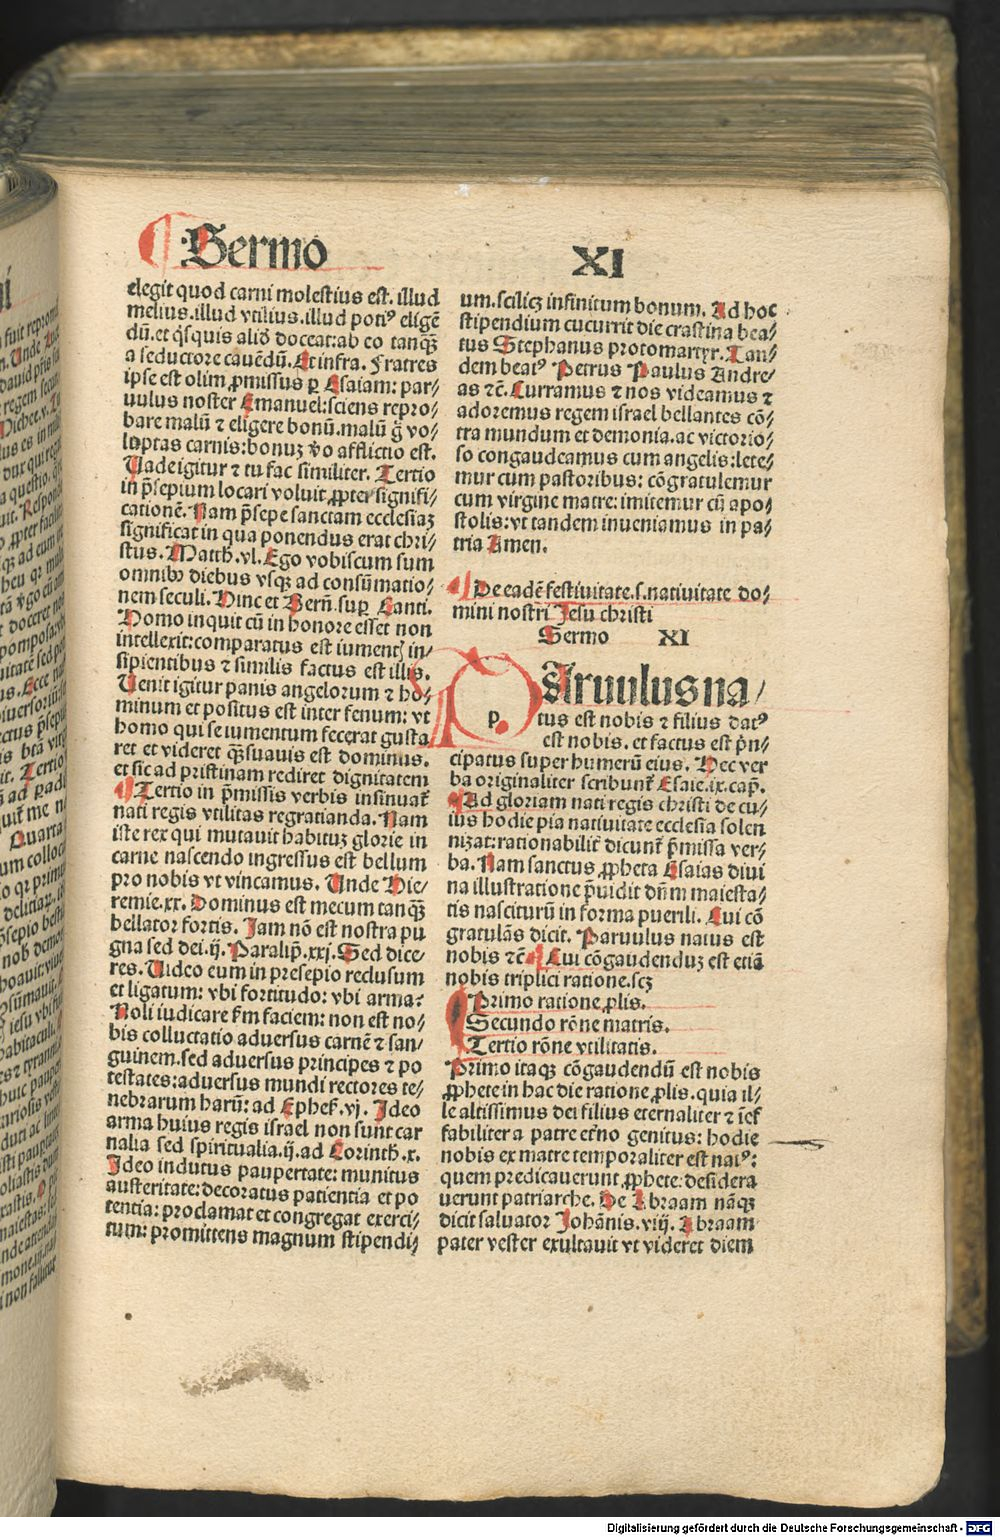 Sermo XI
elegit quod carni molestius est. illud
melius. illud vtilius. illud potiꝰ eligē
dū. et q̇squis aliđ doceat: ab eo tanq̄ꝫ
a seductore cauēdū. Et infra. Fratres
ipse est olim ꝓmissus ꝑ Esaiam: par⸗
uulus noster Emanuel: sciens repro⸗
bare malū ⁊ eligere bonū. malū ḡ vo⸗
luptas carnis: bonuꝫ v̄o afflictio est.
Vade igitur ⁊ tu fac similiter. Tertio
in p̄sepium locari voluit ꝓpter signifi⸗
cationē. Nam p̄sepe sanctam ecclesiaꝫ
significat in qua ponendus erat chri⸗
stus. Matth. vl. Ego vobiscum sum
omnibꝰ diebus vsqꝫ ad consūmatio⸗
nem seculi. Hinc et Berñ. suꝑ Canti.
Homo inquit cū in honore esset non
intellexit: comparatus est iumentꝭ in⸗
sipientibus ⁊ similis factus est illis.
Venit igitur panis angelorum ⁊ ho⸗
minum et positus est inter fenum: vt
homo qui se iumentum fecerat gusta
ret et videret q̄ꝫ suauis est dominus.
et sic ad pristinam rediret dignitatem
¶ Tertio in p̄missis verbis insinuat᷑
nati regis vtilitas regratianda. Nam
iste rex qui mutauit habituꝫ glorie in
carne nascendo ingressus est bellum
pro nobis vt vincamus. Unde Hie⸗
remie. xx. Dominus est mecum tanq̄ꝫ
bellator fortis. Jam nō est nostra pu
gna sed dei. ij. Paraliꝑ. xxj. Sed dice⸗
res. Video eum in presepio reclusum
et ligatum: vbi fortitudo: vbi arma?
Noli iudicare ẜm faciem: non est no⸗
bis colluctatio aduersus carnē ⁊ san⸗
guinem. sed aduersus principes ⁊ po
testates: aduersus mundi rectores te⸗
nebrarum harū: ad Ephes. vj. Ideo
arma huius regis israel non sunt car
nalia sed spiritualia. ij. ad Corinth. x.
Ideo indutus paupertate: munitus
austeritate: decoratus patientia et po
tentia: proclamat et congregat exerci⸗
tum: promittens magnum stipendi⸗
um. scilicꝫ infinitum bonum. Ad hoc
stipendium cucurrit die crastina bea⸗
tus Stephanus protomartyr. Tan⸗
dem beatꝰ Petrus Paulus Andre⸗
as ⁊c̄. Curramus ⁊ nos videamus ⁊
adoremus regem israel bellantes cō⸗
tra mundum et demonia. ac victorio⸗
so congaudeamus cum angelis: lete⸗
mur cum pastoribus: cōgratulemur
cum virgine matre: imitemur cū apo⸗
stolis: vt tandem inueniamus in pa⸗
tria Amen.
¶ De eadē festiuitate. s. natiuitate do⸗
mini nostri Jesu christi
Sermo XI
PAruulus na⸗
tus est nobis ⁊ filius datꝰ
est nobis. et factus est p̄n⸗
cipatus super humerū eius. Hec ver
ba originaliter scribunt᷑ Esaie. ix. cap̄.
¶ Ad gloriam nati regis christi de cu⸗
ius hodie pia natiuitate ecclesia solen
nizat: rationabilit᷑ dicunt᷑ p̄missa ver⸗
ba. Nam sanctus ꝓpheta Esaias diui
na illustratione p̄uidit dn̄m maiesta⸗
tis nasciturū in forma puerili. Cui cō
gratulās dicit. Paruulus natus est
nobis ⁊c̄. ¶ Cui cōgaudenduꝫ est etiā
nobis triplici ratione. scꝫ
Primo ratione ꝓlis.
Secundo rōne matris.
Tertio rōne vtilitatis.
Primo itaqꝫ cōgaudendū est nobis
ꝓphete in hac die ratione ꝓlis. quia il⸗
le altissimus dei filius eternaliter ⁊ inef
fabiliter a patre et᷑no genitus: hodie
nobis ex matre temporaliter est natꝰ:
quem predicauerunt ꝓphete: desidera
uerunt patriarche. De Abraam nāqꝫ
dicit saluator Johānis. viij. Abraam
pater vester exultauit vt videret diem
Digitalisierung gefördert durch die Deutsche Forschungsgemeinschaft - DFG